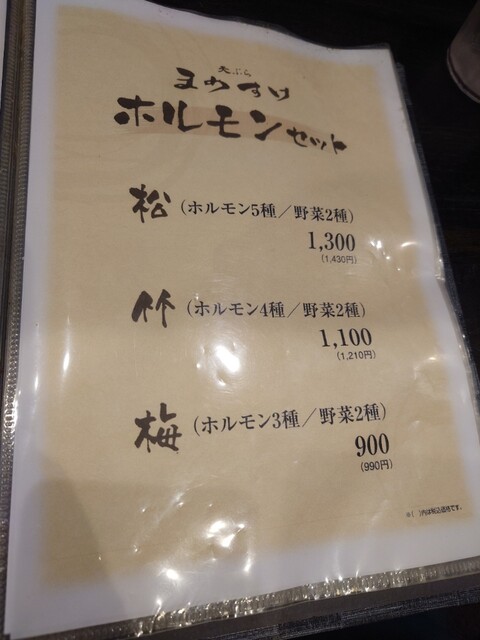 天ぷら
まめすけ
ホルモンセット
松（ホルモン5種／野菜2種）
1,300
（1,430円）
竹（ホルモン4種／野菜2種）
1,100
（1,210円）
梅（ホルモン3種／野菜2種）
900
（990円）
※（ ）内は税込価格です。